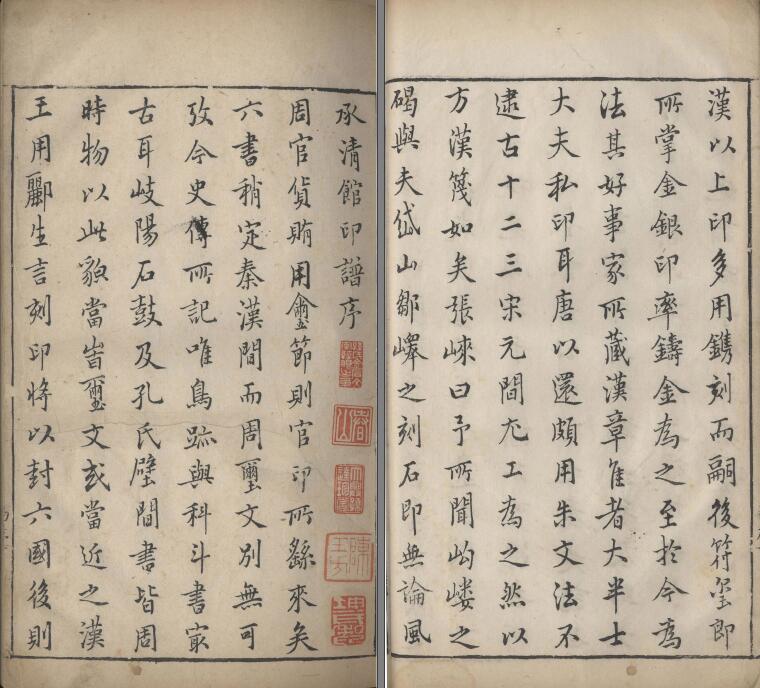 承清館印譜序
周官貨賄用璽節則官印所繇來矣
六書稍定秦漢間而周壐文別無可
攷今史傳所記唯鳥跡與科斗書冣
古耳岐陽石鼓及孔氏壁間書皆周
時物以此貌當旹壐文或當近之漢
王用酈生言刻印將以封六國後則
漢以上印多用鐫刻而嗣後符璽即
所掌金銀印率鑄金為之至於今為
法其好事家所藏漢章隹者大半士
大夫私印耳唐以還頗用朱文法不
逮古十二三宋元間尤工為之然以
方漢篾如矣張崍曰予所聞岣嶁之
碣與夫岱山鄒嶧之刻石即無論風